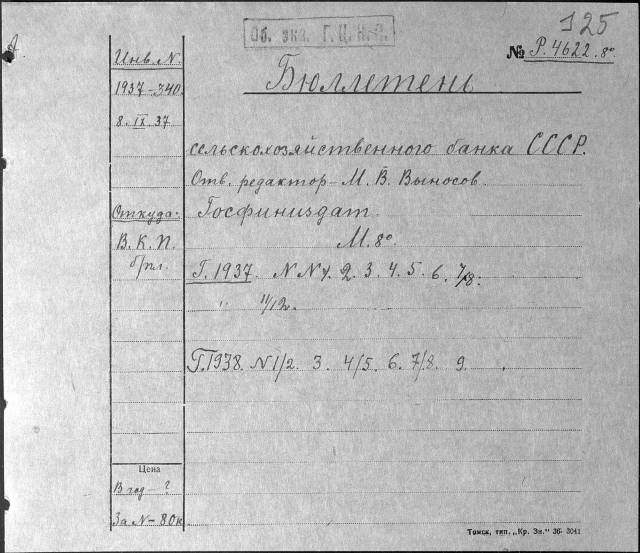 125
Об. экз. Г.Ц.К.П.
№ Р.4622.8°
Бюллетень
сельскохозяйственного банка СССР.
Отв. редактор - М. В. Выносов.
Госфиниздат.
М. 8°
Г. 1937. N N 1. 2. 3. 4. 5. 6. 7/8.
" 11/12.
Г. 1938. N 1/2. 3. 4/5. 6. 7/8. 9.
Инв. N.
1937-340.
8. IX. 37
Откуда:
В. К. П.
бпл.
Цена
В год - ?
За N - 80к.
Томск, тип. „Кр. Зн." 36- 3041